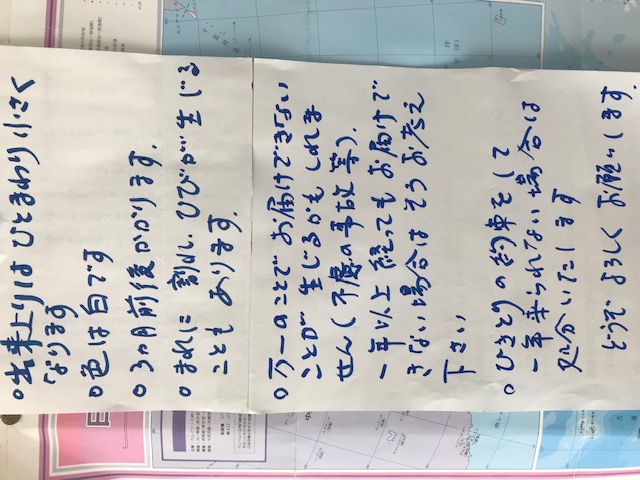 ○出来上りはひとまわり小さく
なります
○色は白です
○3ヵ月前後かかります.
○まれに 割れ、ひびが生じる
こともあります.
○万一のことでお届けできない
ことが生じるかもしれま
せん(不慮の事故等).
一年以上経ってもお届けで
きない場合はそうお考え
下さい
○ひきとりの約束をして
一年来られない場合は
処分いたします
どうぞよろしくお願いします.